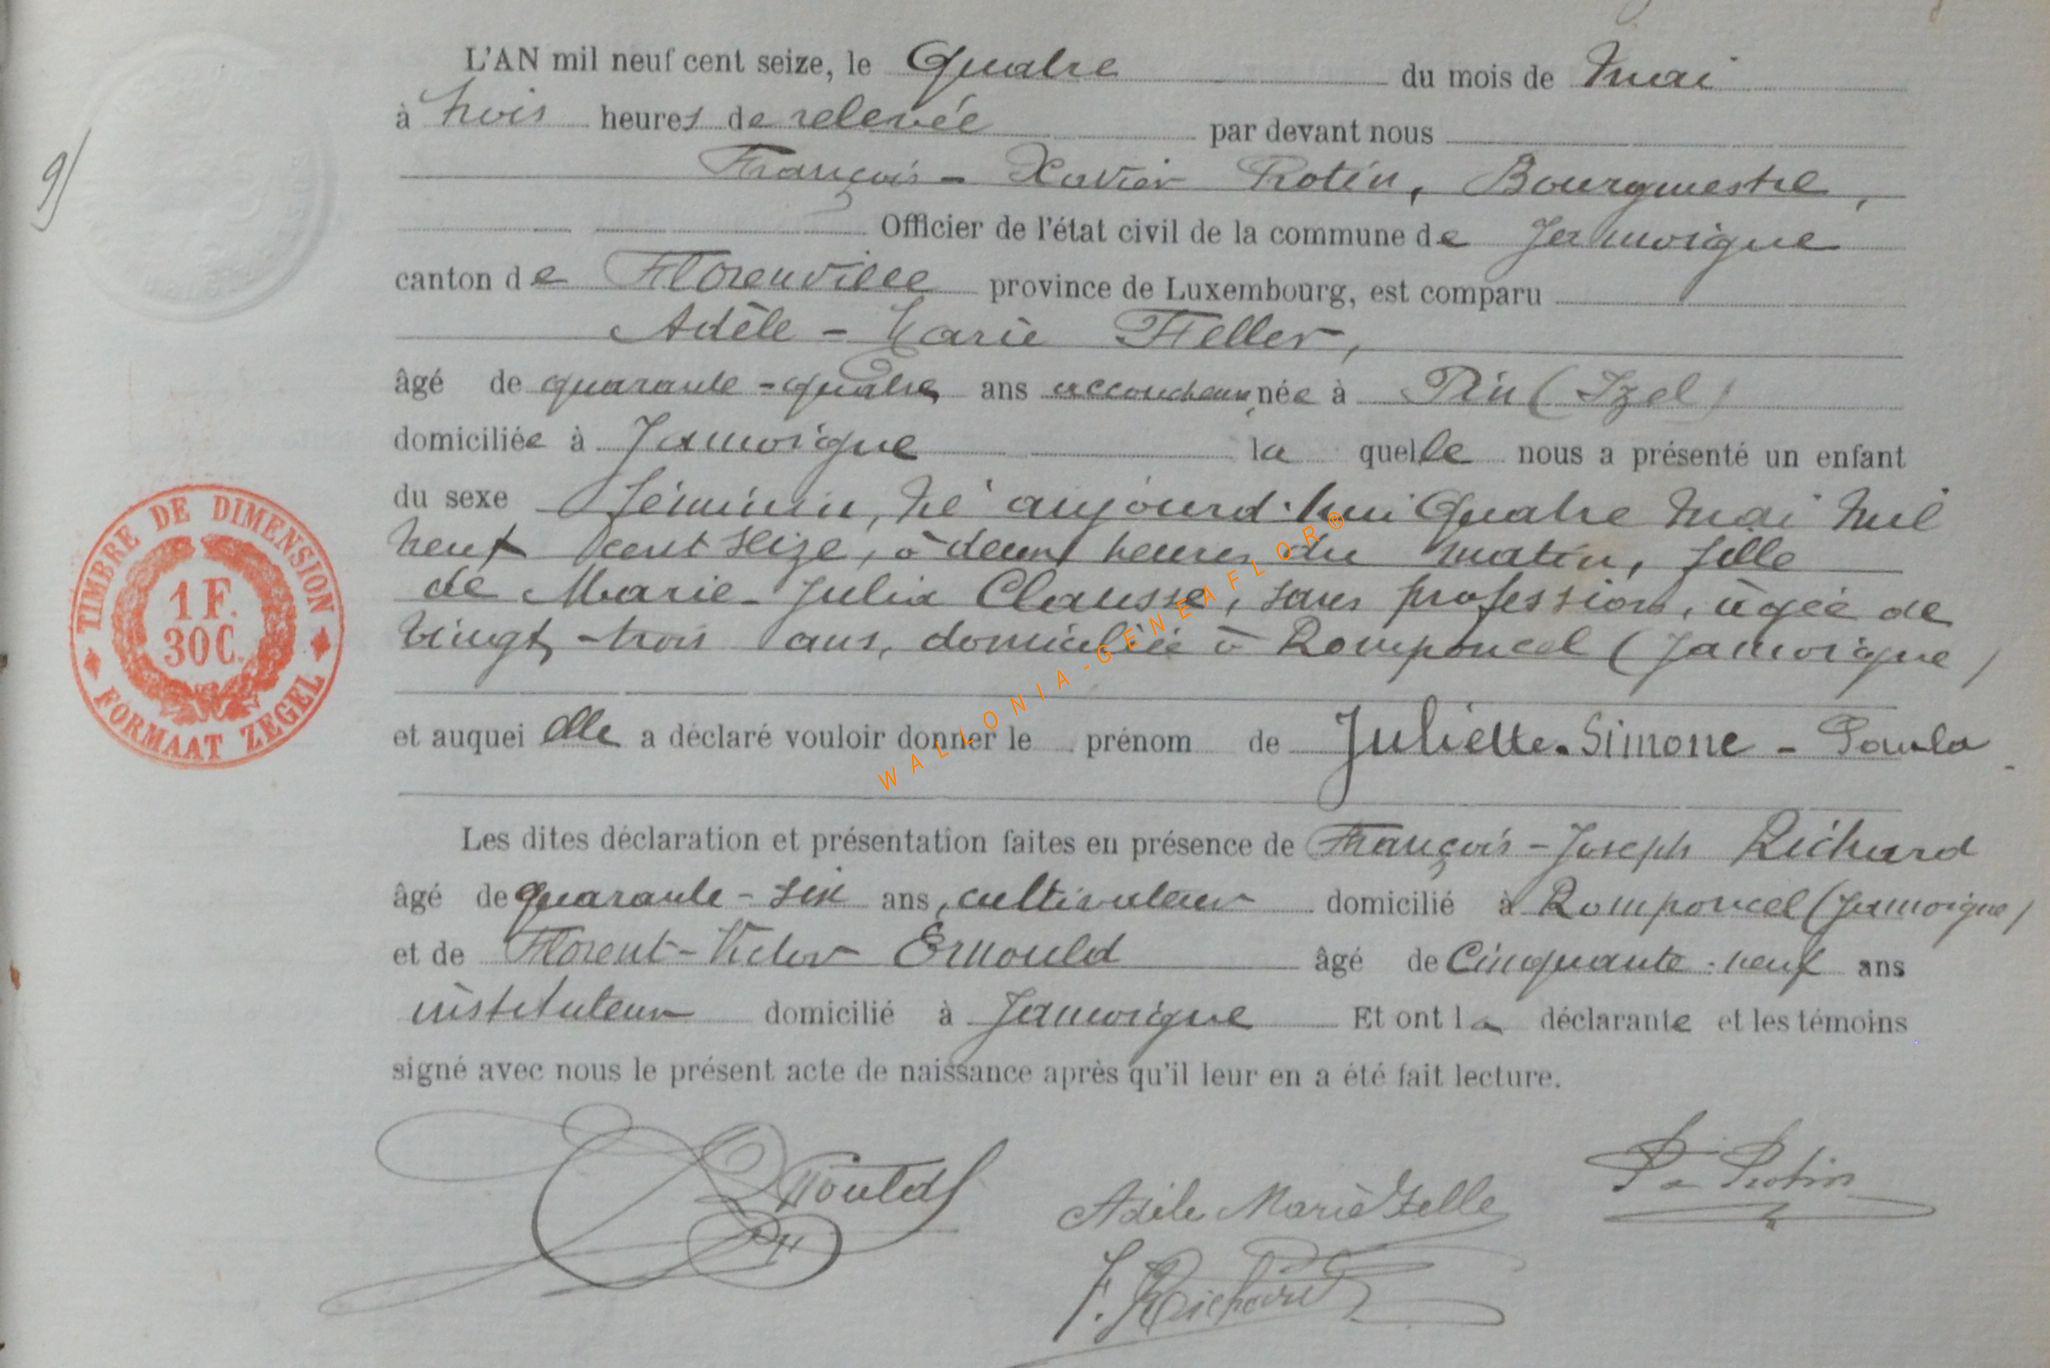 9)
L'AN mil neuf cent seize, le Quatre du mois de Mai
à trois heures de relevée par devant nous
François-Xavier Protin, Bourgmestre,
Officier de l'état civil de la commune de Jamoigne
canton de Florenville province de Luxembourg, est comparu
Adèle-Marie Feller,
âgé de quarante-quatre ans accoucheuse, née à Pin (Izel)
domiciliée à Jamoigne la quelle nous a présenté un enfant
du sexe féminin, né aujourd'hui Quatre Mai Mil
neuf cent seize, à deux heures du matin, fille
de Marie-Julia Clausse, sans profession, âgée de
vingt-trois ans, domiciliée à Romponcel (Jamoigne)
et auquel elle a déclaré vouloir donner le prénom de Juliette-Simone-Paula
Les dites déclaration et présentation faites en présence de François-Joseph Richard
âgé de quarante-six ans, cultivateur domicilié à Romponcel (Jamoigne)
et de Florent-Victor Ernould âgé de Cinquante-neuf ans
instituteur domicilié à Jamoigne Et ont la déclarante et les témoins
signé avec nous le présent acte de naissance après qu'il leur en a été fait lecture.
Adèle Marie Felle
F. Richard
Protin
TIMBRE DE DIMENSION
1 F.
30 C.
FORMAAT ZEGEL
WALLONIA-GENEAFLOR®